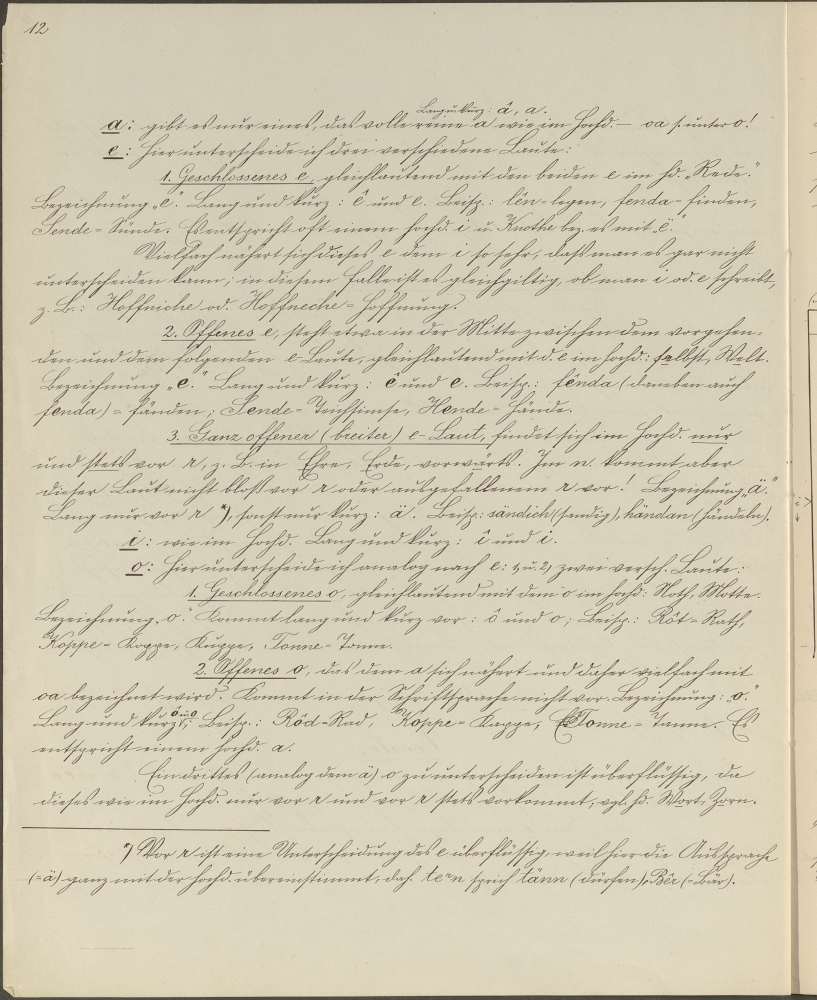 12
Lang u. kurz: â, a.
a: gibt es nur eines, das volle reine a wie im Hochd. — oa s. unter o!
e: Hier unterscheide ich drei verschiedene Laute:
1. Geschlossenes e, gleichlautend mit den beiden e im hd. „Rede".
Bezeichnung „e". Lang und kurz: ê und e. Beisp.: lên-legen, fenda-finden,
Sende-Sünde. Es entspricht oft einem hochd. i u. Knothe bez. es mit „ë".
Vielfach nähert sich dieses e dem i so sehr, daß man es gar nicht
unterscheiden kann; in diesem Falle ist es gleichgiltig, ob man i od. e schreibt,
z. B.: Hoffniche od. Hoffneche = Hoffnung.
2. Offenes e, steht etwa in der Mitte zwischen dem vorgehen-
den und dem folgenden e-Laute, gleichlautend mit d. e im hochd.: selbst, Welt.
Bezeichnung „e." Lang und kurz: ê und e. Beisp.: fênda (daneben auch
fenda) = fänden; Sende = Teichsimse, Hende = Hände.
3. Ganz offener (breiter) e-Laut, findet sich im Hochd. nur
und stets vor r, z. B. in Ehre, Erde, vorwärts. Im n. kommt aber
dieser Laut nicht bloß vor r oder ausgefallenem r vor! Bezeichnung „ä."
Lang nur vor r *), sonst nur kurz: ä. Beisp.: sändich (sandig), händan (händeln).
i: wie im Hochd. Lang und kurz: î und i.
o: Hier unterscheide ich analog nach e: 1, u. 2, zwei versch. Laute:
1. Geschlossenes o, gleichlautend mit dem o im hochd: Noth, Motte.
Bezeichnung „o." Kommt lang und kurz vor: ô und o; Beisp.: Rôt = Rath,
Koppe = Koppe, Kuppe, Tonne = Tonne.
2. Offenes o, das dem a sich nähert und daher vielfach mit
oa bezeichnet wird. Kommt in der Schriftsprache nicht vor. Bezeichnung: „o."
ô u. o
Lang und kurz; Beisp.: Rôd = Rad, Koppe = Kappe, Tonne = Tanne. Es
entspricht einem hochd. a.
Ein drittes (analog dem ä) o zu unterscheiden ist überflüssig, da
dieses wie im Hochd. nur vor r und vor r stets vorkommt, vgl. hd. Wort, Zorn.
*) Vor r ist eine Unterscheidung des e überflüssig, weil hier die Aussprache
(= ä) ganz mit der hochd. übereinstimmt, dah. tern sprich tänn (dürfen), Bêr (= Bär).